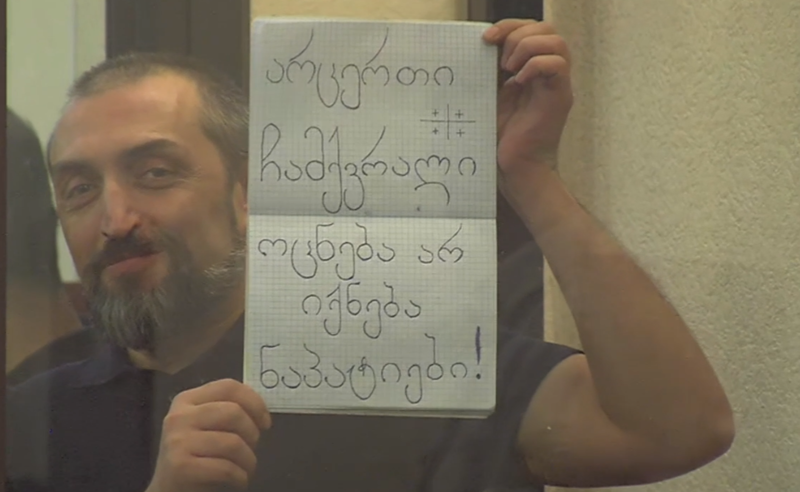 არცერთი
ჩამქვრალი
ოცნება არ
იქნება
ნაპატიები!